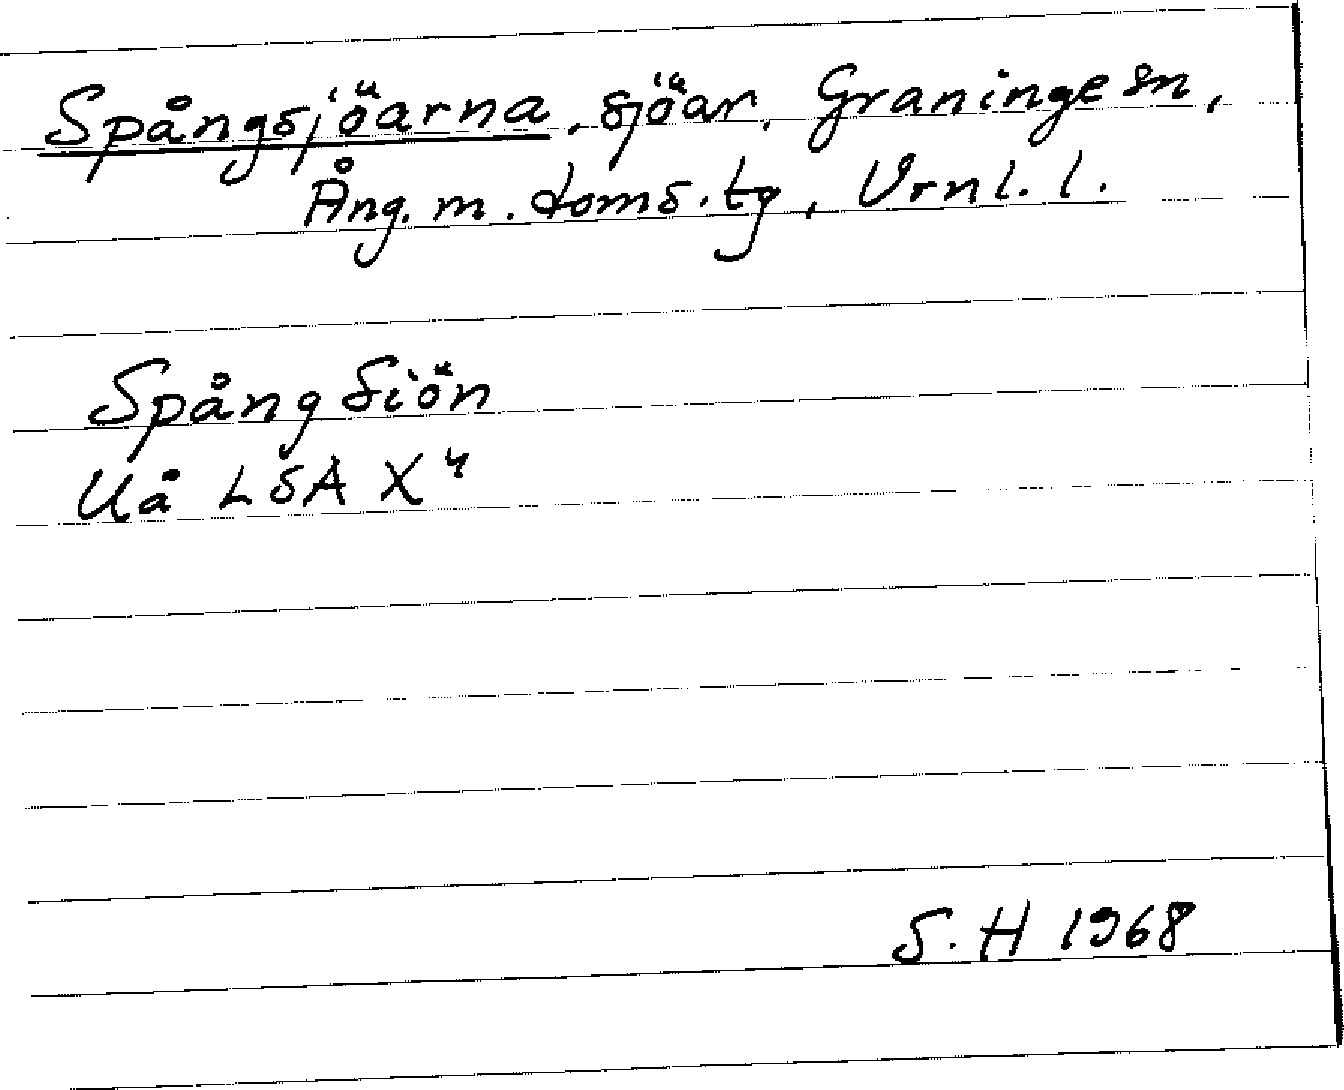 Spångsjöarna, sjöar, Graninge sn,
Ång. m. doms.tg, Vrnl. l.
Spång Siön
Uå LSA X⁴
S. H 1968